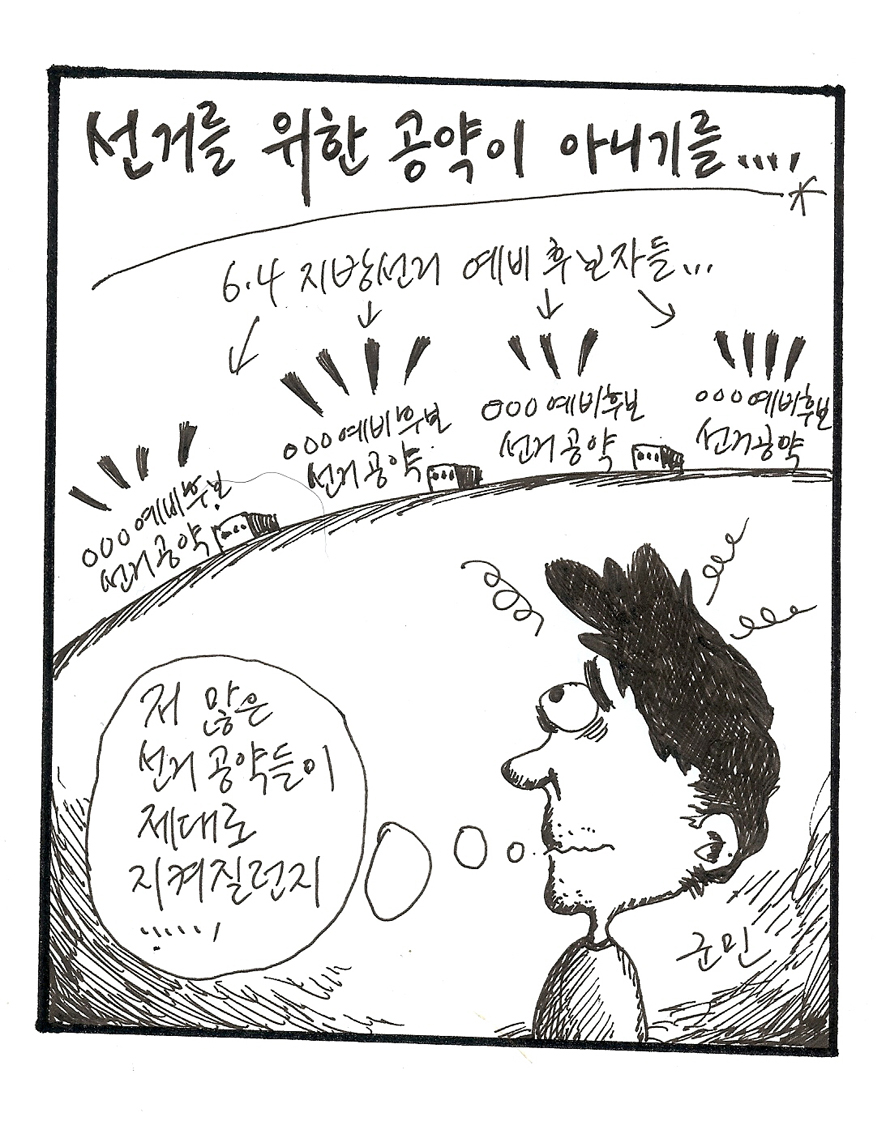 선거를 위한 공약이 아니기를....,
6.4 지방선거 예비 후보자들...
○○○예비후보
선거공약
○○○예비후보
선거공약
○○○예비후보
선거공약
○○○예비후보
선거공약
저 많은
선거 공약들이
제대로
지켜질런지
.....,
군민